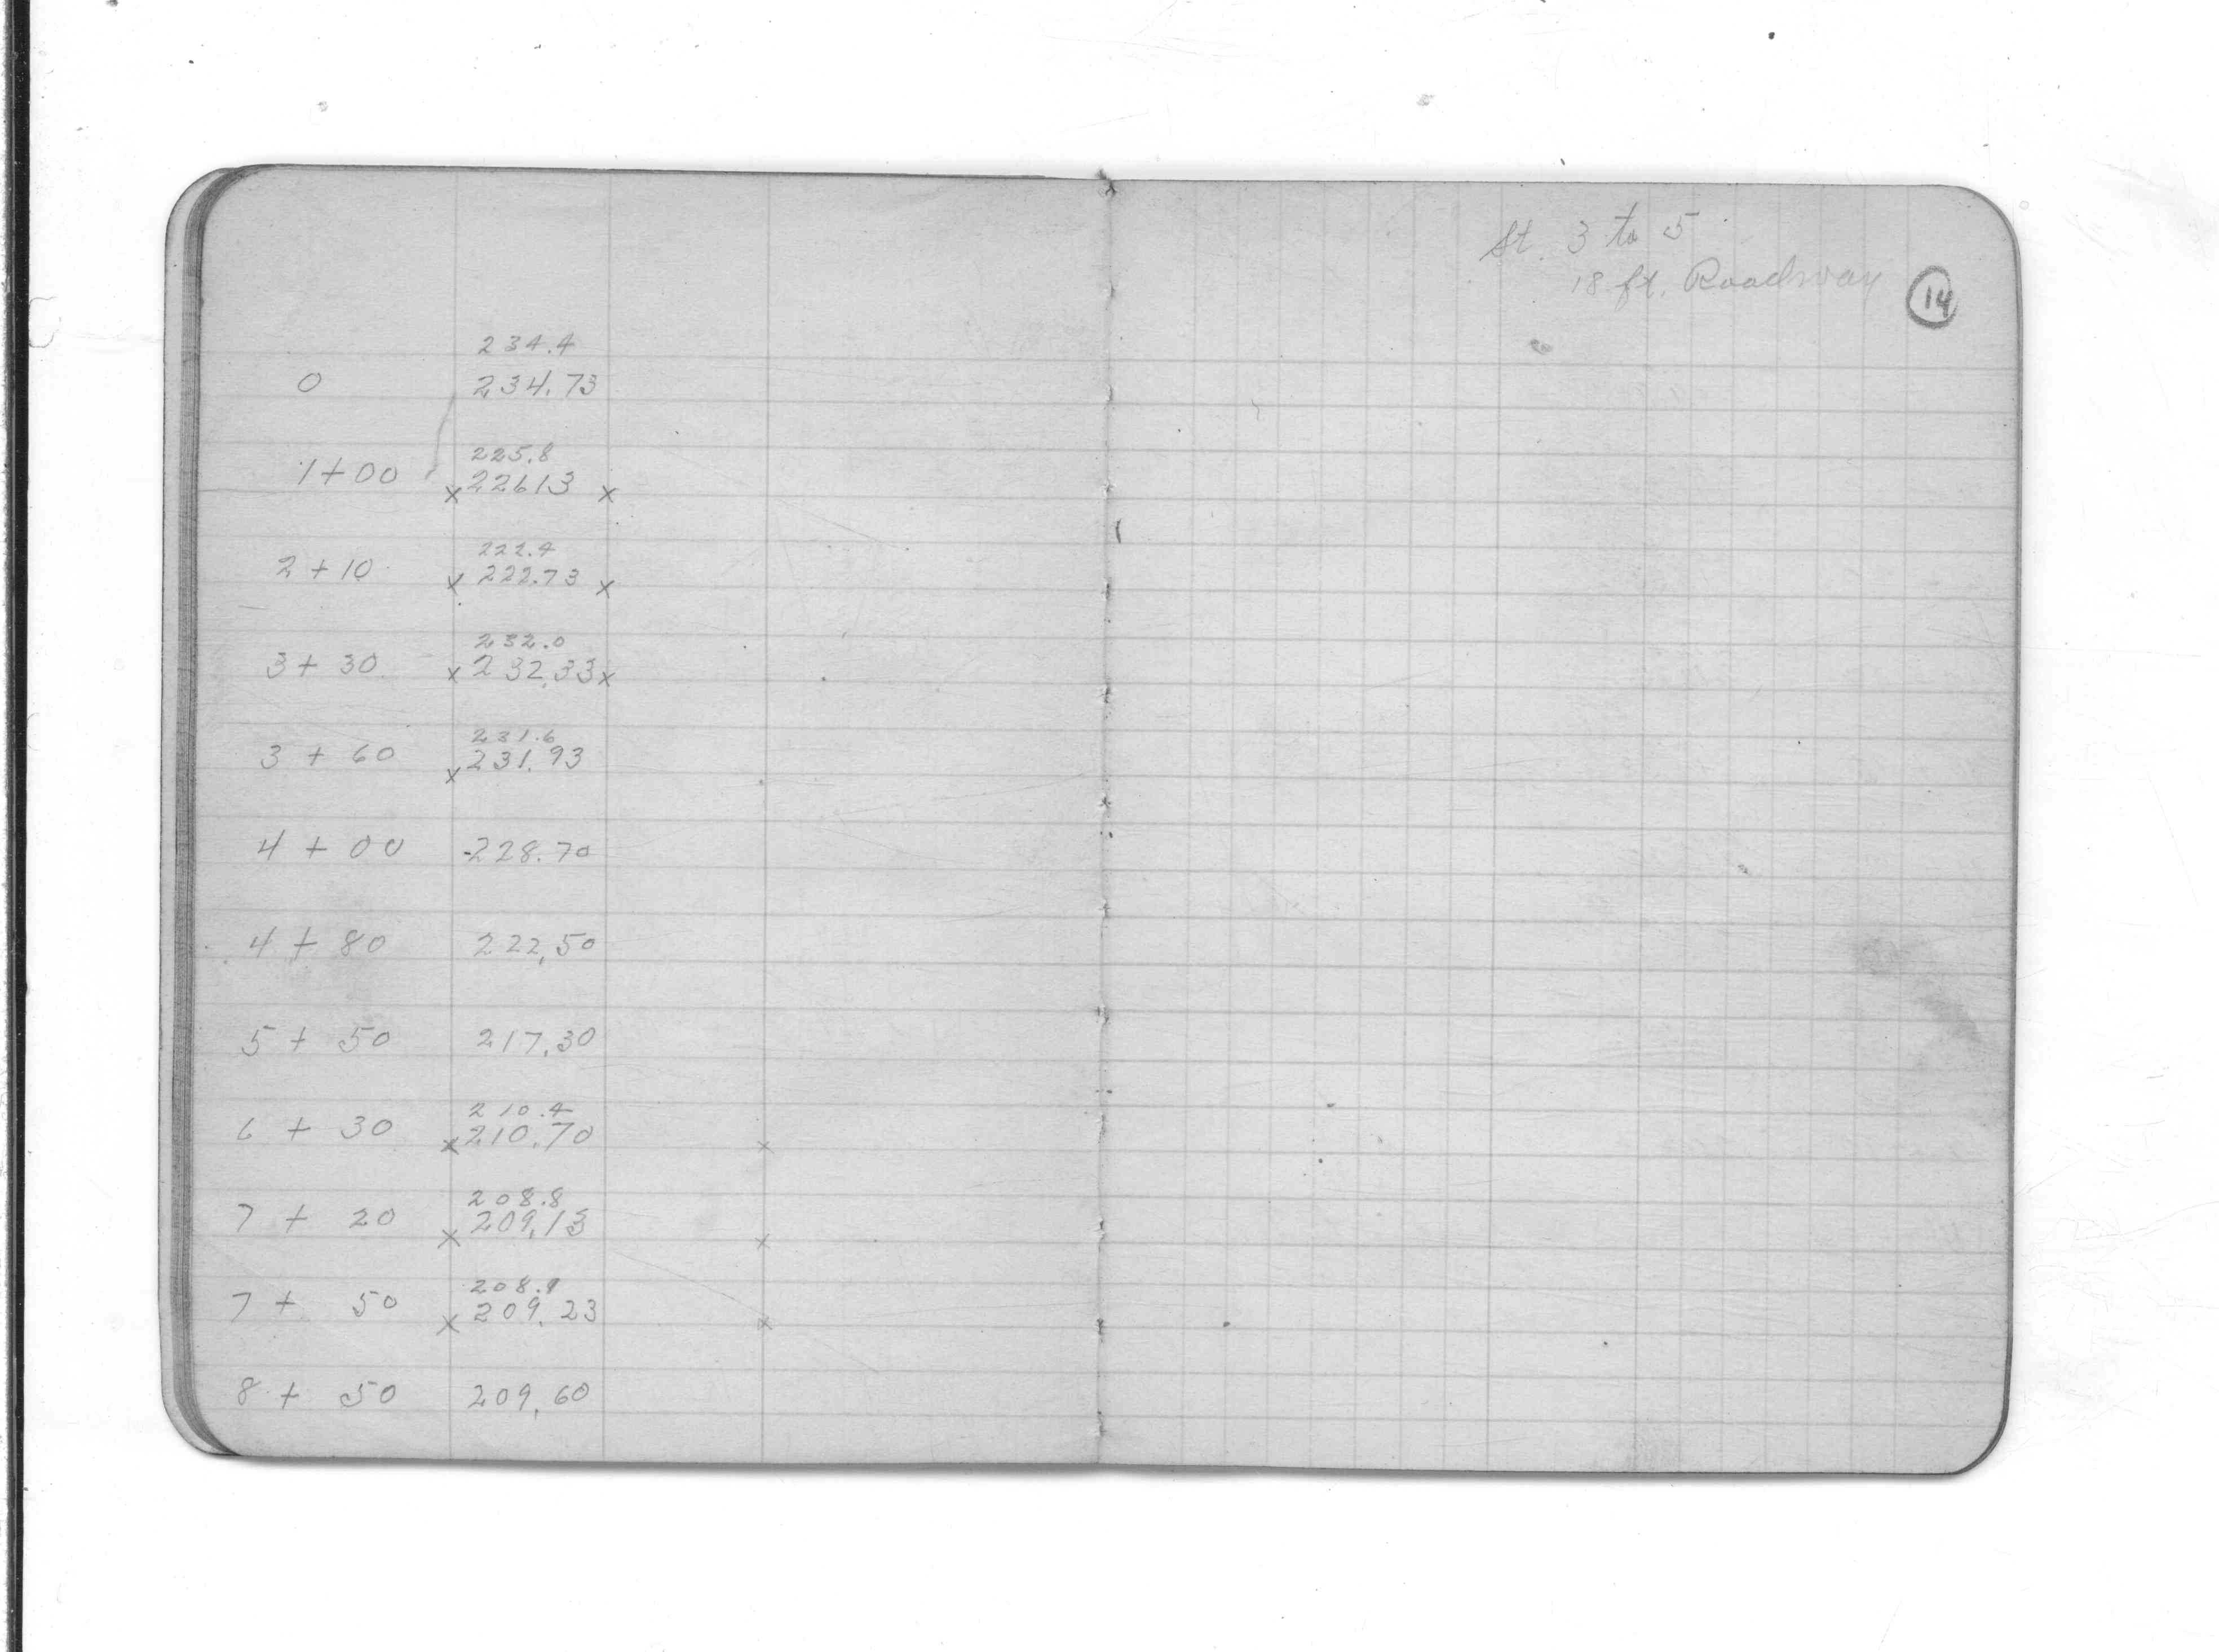 234.4
0 234.73
225.8
1+00 x 226.13 x
222.4
2+10 x 222.73 x
232.0
3+30 x 232.33 x
231.6
3+60 x 231.93
4+00 228.70
4+80 222.50
5+50 217.30
210.4
6+30 x 210.70 x
208.8
7+20 x 209.13 x
208.9
7+50 x 209.23 x
8+50 209.60
St. 3 to 5
18 ft. Roadway
14